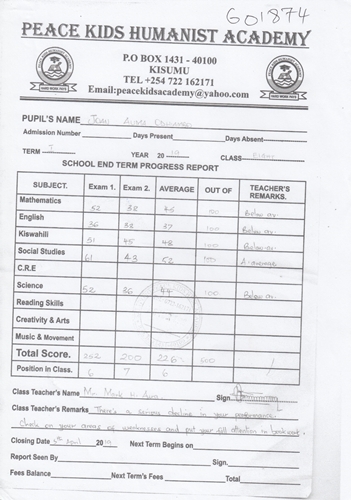 601874
PEACE KIDS HUMANIST ACADEMY
P.O BOX 1431 - 40100
KISUMU
TEL +254 722 162171
Email:peacekidsacademy@yahoo.com
HARD WORK PAYS HARD WORK PAYS
PUPIL'S NAME Joan Auma
Admission Number Days Present Days Absent
TERM I YEAR 20 19 CLASS EIGHT
SCHOOL END TERM PROGRESS REPORT
SUBJECT. Exam 1. Exam 2. AVERAGE OUT OF TEACHER'S REMARKS.
Mathematics 52 38 45 100 Below av.
English 36 38 37 100 Below av.
Kiswahili 51 45 48 100 Below av.
Social Studies 61 43 52 100 Average
C.R.E
Science 52 36 44 100 Below av.
Reading Skills
Creativity & Arts
Music & Movement
Total Score. 252 200 226 500
Position in Class. 6 7 6
Class Teacher's Name Mr. Mark Sign.
Class Teacher's Remarks There's a serious decline in your performance.
Check on your areas of weaknesses and put your full attention to bookwork.
Closing Date 5th April 2019 Next Term Begins on
Report Seen By Sign.
Fees Balance Next Term's Fees Total